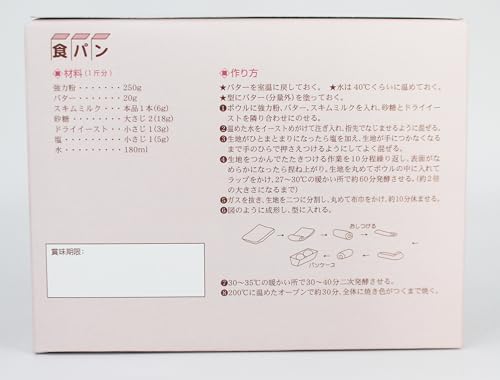 食パン
材料(1斤分)
強力粉・・・・・・・・250g
バター・・・・・・・・20g
スキムミルク・・・本品1本(6g)
砂糖・・・・・・大さじ2(18g)
ドライイースト・・小さじ1(3g)
塩・・・・・・・・小さじ1(5g)
水・・・・・・・・・180ml
賞味期限:
作り方
★バターを室温に戻しておく。 ★水は40℃くらいに温めておく。
★型にバター(分量外)を塗っておく。
❶ボウルに強力粉、バター、スキムミルクを入れ、砂糖とドライイー
ストを隣り合わせにのせる。
❷温めた水をイーストめがけて注ぎ入れ、指先でなじませるように混ぜる。
❸生地がひとまとまりになったら塩を加え、生地が手につかなくなる
まで手のひらで押さえつけるようにしてよく混ぜる。
❹生地をつかんでたたきつける作業を10分程繰り返し、表面がな
めらかになったら捏ね上がり。生地を丸めてボウルの中に入れて
ラップをかけ、27〜30℃の暖かい所で約60分発酵させる。(約2倍
の大きさになるまで)
❺ガスを抜き、生地を二つに分割し、丸めて布巾をかけ、約10分休ませる。
❻図のように成形し、型に入れる。
おしつける
パンケース
❼30〜35℃の暖かい所で30〜40分二次発酵させる。
❽200℃に温めたオーブンで約30分、全体に焼き色がつくまで焼く。